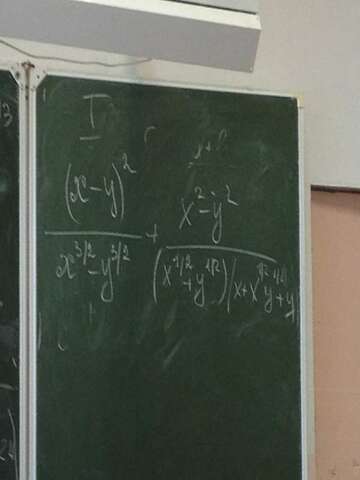 I
(x-y)^2 / (x^{3/2}-y^{3/2}) + (x^2-y^2) / ((x^{1/2}+y^{1/2})(x+x^{1/2}y^{1/2}+y))